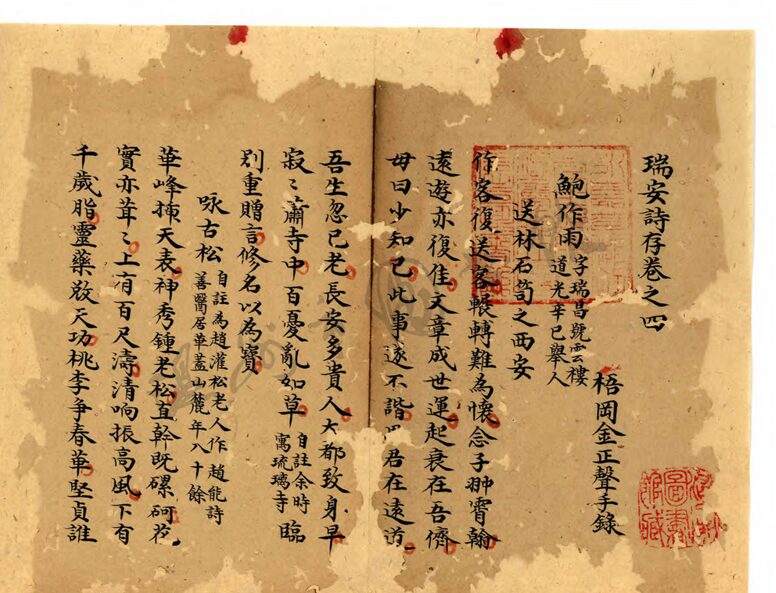 瑞安詩存卷之四
梧岡金正聲手錄
鮑作雨字瑞昌號雲樓道光辛巳舉人
送林石笥之西安
作客復送客輾轉難為懷念子翀霄翰
遠遊亦復佳文章成世運起衰在吾儕
毋曰少知己此事遂不諧君在遠道
吾生忽已老長安多貴人大都致身早
寂〻蕭寺中百憂亂如草自註余時寓琉璃寺臨
別重贈言修名以為寶
咏古松自註為趙灌松老人作趙能詩善醫居華蓋山麓年八十餘
華峰揷天表神秀鍾老松直幹既磥砢花
實亦茸〻上有百尺濤清响振高風下有
千歲脂靈藥敚天功桃李爭春華堅貞誰
圖書館藏